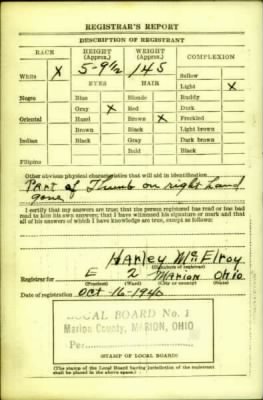 REGISTRAR'S REPORT
DESCRIPTION OF REGISTRANT
RACE HEIGHT (Approx.) WEIGHT (Approx.) COMPLEXION
White X 5-9½ 145 Sallow
EYES HAIR Light X
Negro Blue Blonde Ruddy
Gray X Red Dark
Oriental Hazel Brown X Freckled
Brown Black Light brown
Indian Black Gray Dark brown
Bald Black
Filipino
Other obvious physical characteristics that will aid in identification
Part of Thumb on right hand
gone
I certify that my answers are true; that the person registered has read or has had
read to him his own answers; that I have witnessed his signature or mark and that
all of his answers of which I have knowledge are true, except as follows:
Harley McElroy
(Signature of registrar)
Registrar for E 2 Marion Ohio
(Precinct) (Ward) (City or county) (State)
Date of registration Oct-16-1940
LOCAL BOARD No. 1
Marion County, MARION, OHIO
Per
(STAMP OF LOCAL BOARD)
(The stamp of the Local Board having jurisdiction of the registrant
shall be placed in the above space.)